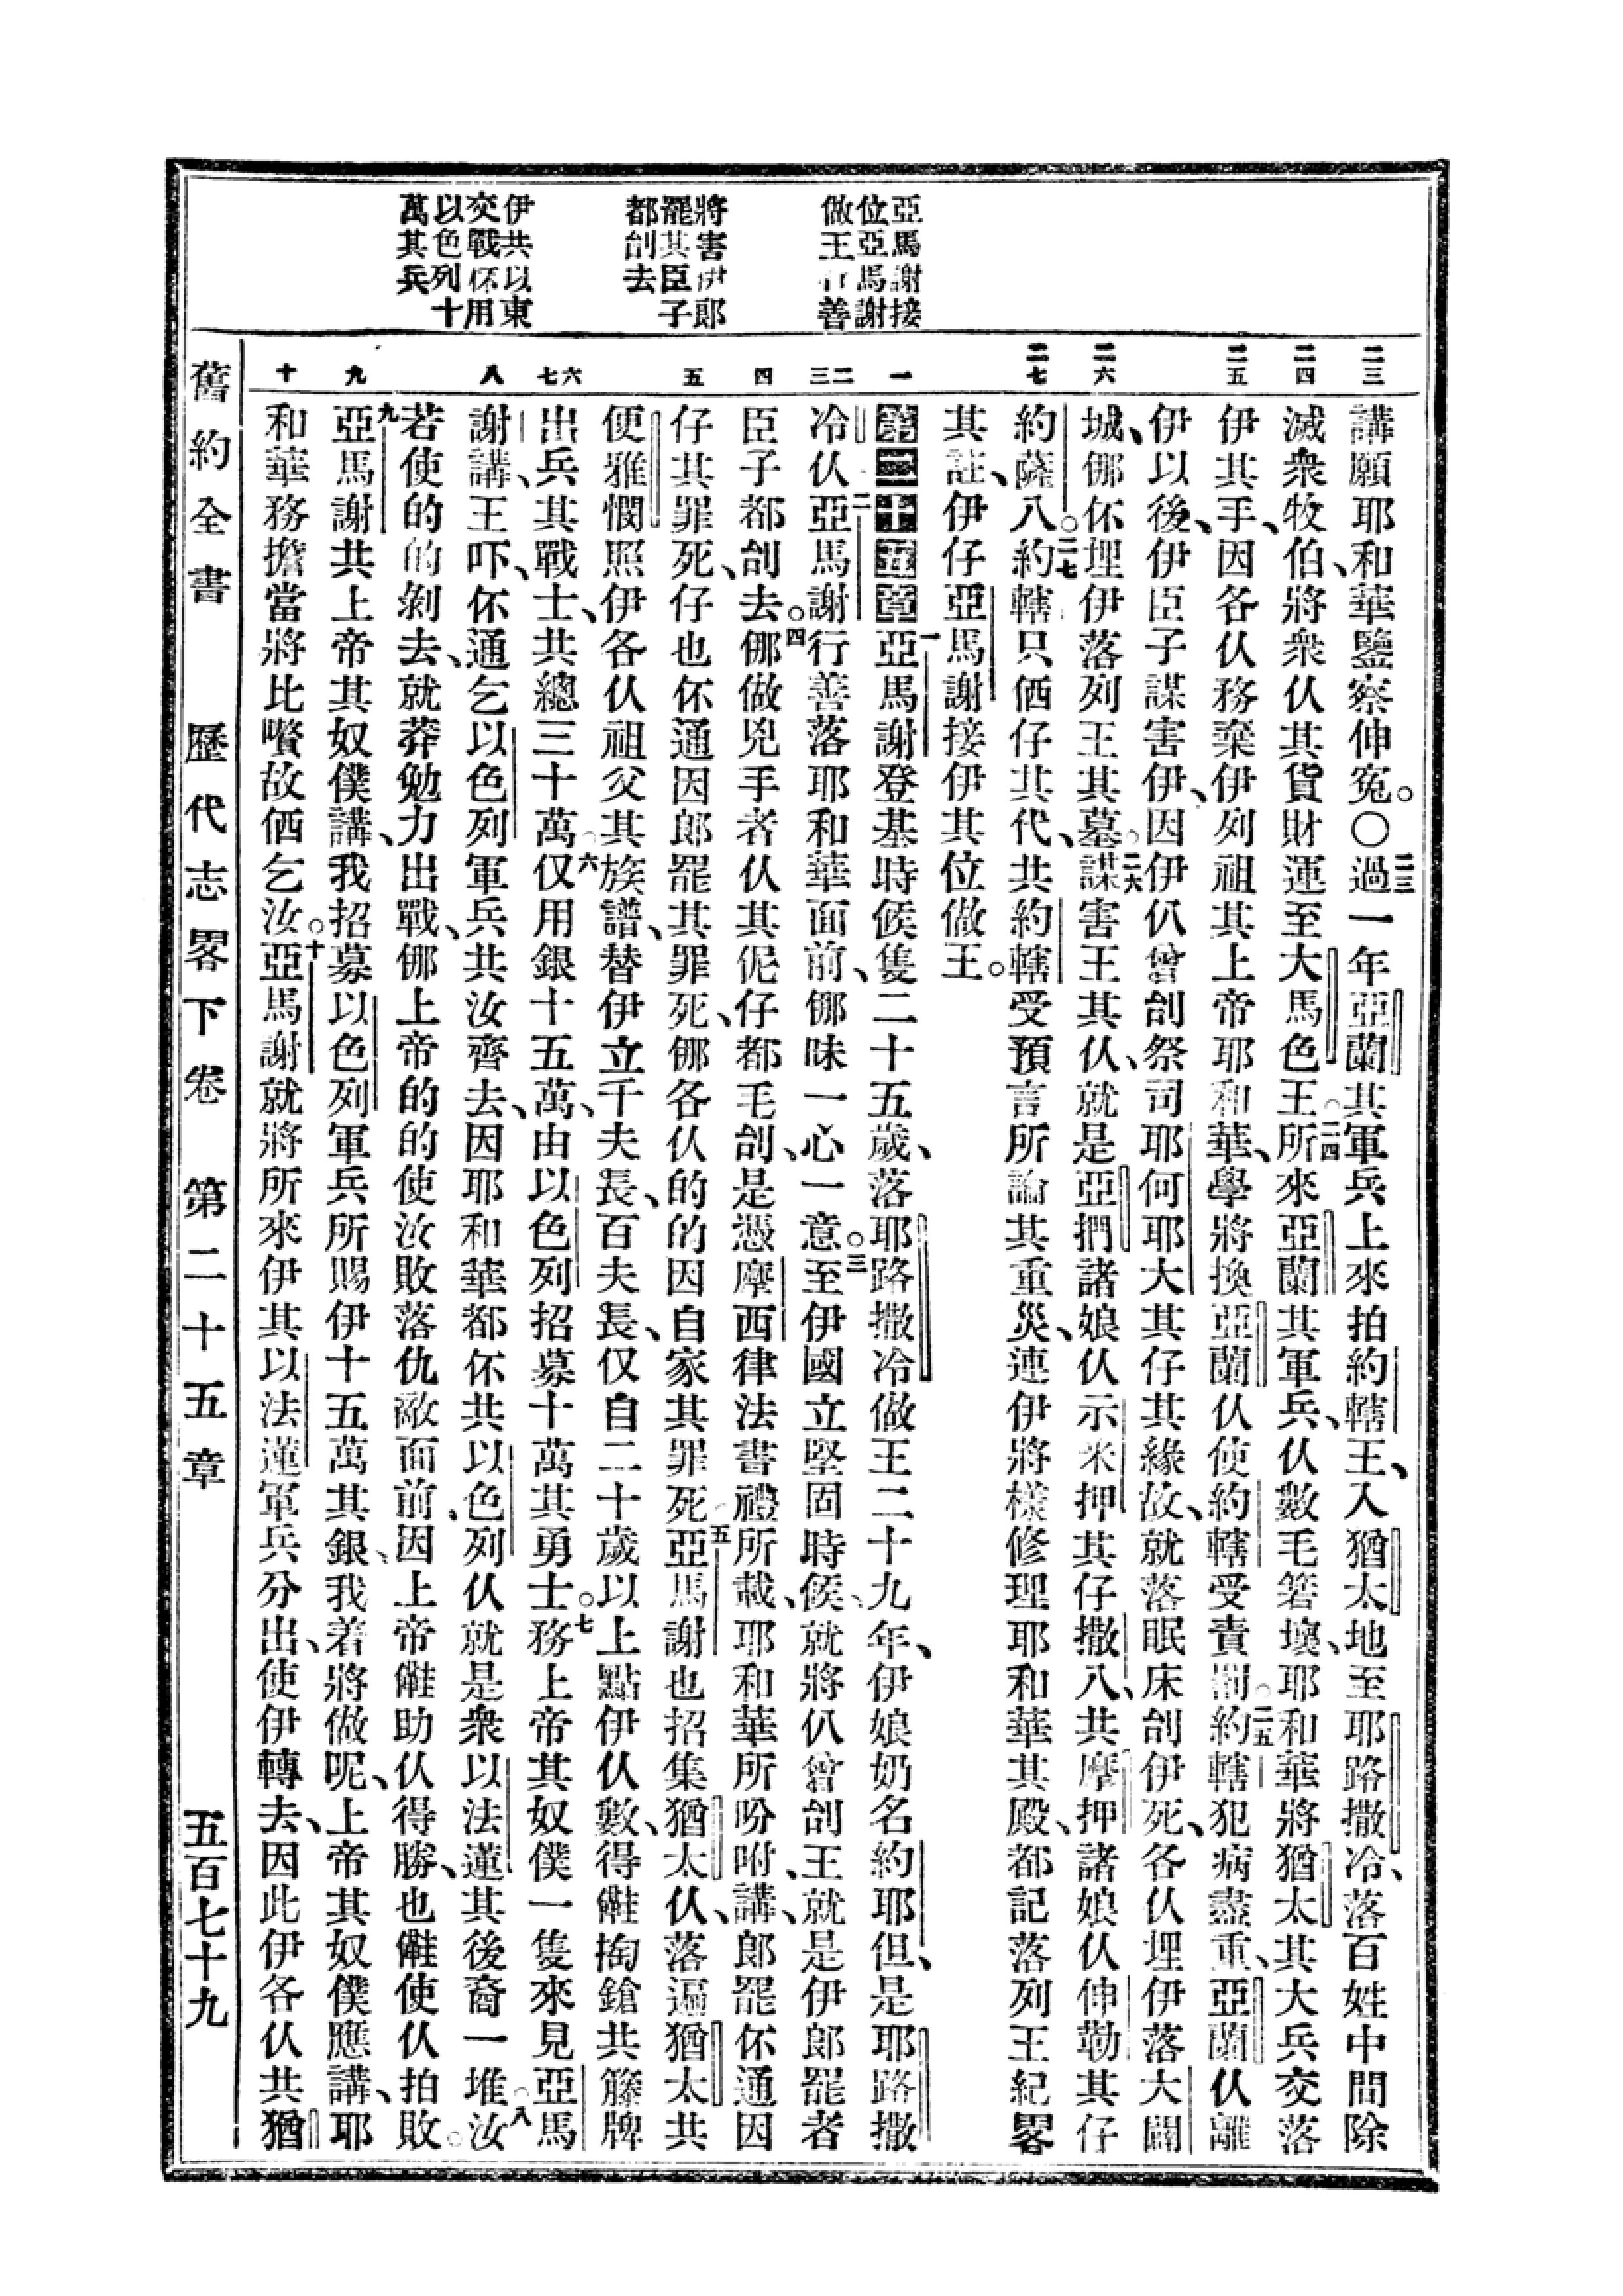 亞馬謝接
位亞馬謝
做王行善
將害伊郎
罷其臣子
都刣去
伊共以東
交戰伓用
以色列十
萬其兵
二三
二四
二五
二六
二七
一
二
三
四
五
六
七
八
九
十
講願耶和華鑒察伸冤。〇二三過一年亞蘭其軍兵上來拍約轄王、入猶太地至耶路撒冷、落百姓中間除
滅衆牧伯、將衆仈其貨財運至大馬色王所。二四來亞蘭其軍兵、仈數毛箬壞、耶和華將猶太其大兵交落
伊其手、因各仈務棄伊列祖其上帝耶和華、學將換亞蘭仈使約轄受責罰。二五約轄犯病盡重、亞蘭仈離
伊以後、伊臣子謀害伊、因伊仈曾刣祭司耶何耶大其仔其緣故、就落眠床刣伊死、各仈埋伊落大闢
城、㑚伓埋伊落列王其墓。二六謀害王其仈、就是亞捫諸娘仈示米押其仔撒八、共摩押諸娘仈伸勒其仔
約薩八。二七約轄只価仔其代、共約轄受預言所論其重災、連伊將樣修理耶和華其殿、都記落列王紀畧
其註、伊仔亞馬謝接伊其位做王。
第二十五章一亞馬謝登基時候隻二十五歲、落耶路撒冷做王二十九年、伊娘奶名約耶但、是耶路撒
冷仈二亞馬謝行善落耶和華面前、㑚昧一心一意。三至伊國立堅固時候、就將仈曾刣王就是伊郎罷者
臣子都刣去。四㑚做兇手者仈其伲仔、仔都毛刣、是憑摩西律法書禮所載、耶和華所吩咐、講、郎罷伓通因
仔其罪死、仔也伓通因郎罷其罪死、㑚各仈的的因自家其罪死五亞馬謝也招集猶太仈、落逼猶太共
便雅憫照伊各仈祖父其族譜、替伊立千夫長、百夫長、仅自二十歲以上點伊仈數、得㒕掏鎗共籐牌
出兵其戰士、共總三十萬。六仅用銀十五萬、由以色列招募十萬其勇士。七務上帝其奴僕一隻來見亞馬
謝講、王吓、伓通乞以色列軍兵共汝齊去、因耶和華都伓共以色列仈就是衆以法蓮其後裔一堆。八汝
若使的的剝去、就莽勉力出戰、㑚上帝的的使汝敗落仇敵面前、因上帝㒕助仈得勝、也㒕使仈拍敗。
九亞馬謝共上帝其奴僕講、我招募以色列軍兵所賜伊十五萬其銀、我着將做呢、上帝其奴僕應講、耶
和華務擔當將比嚽故価乞汝。十亞馬謝就將所來伊其以法蓮軍兵分出、使伊轉去、因此伊各仈共猶
舊約全書　歷代志畧下卷　第二十五章　五百七十九